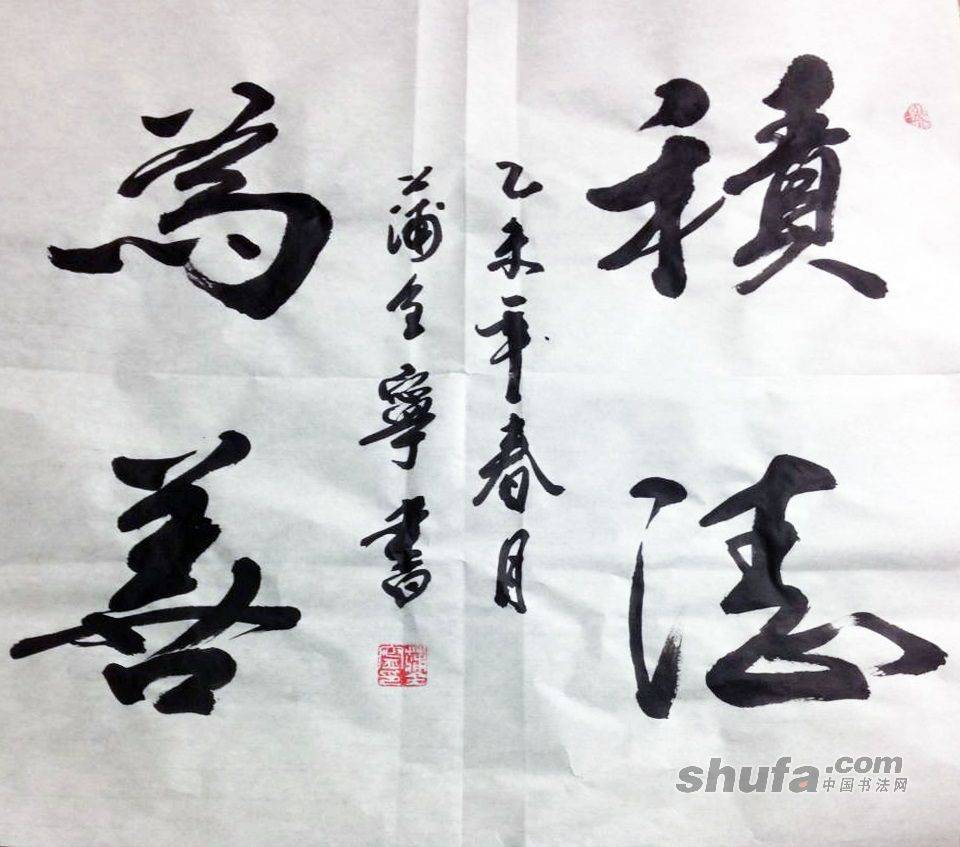 積德
為善
乙未年春月
蒲全寧書
shufa.com
中国书法网